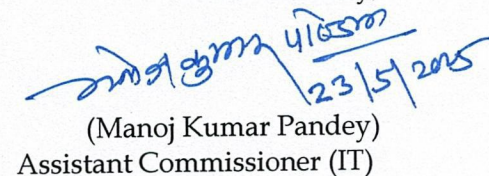 मनोज कुमार पाण्डेय
23/5/2025
(Manoj Kumar Pandey)
Assistant Commissioner (IT)